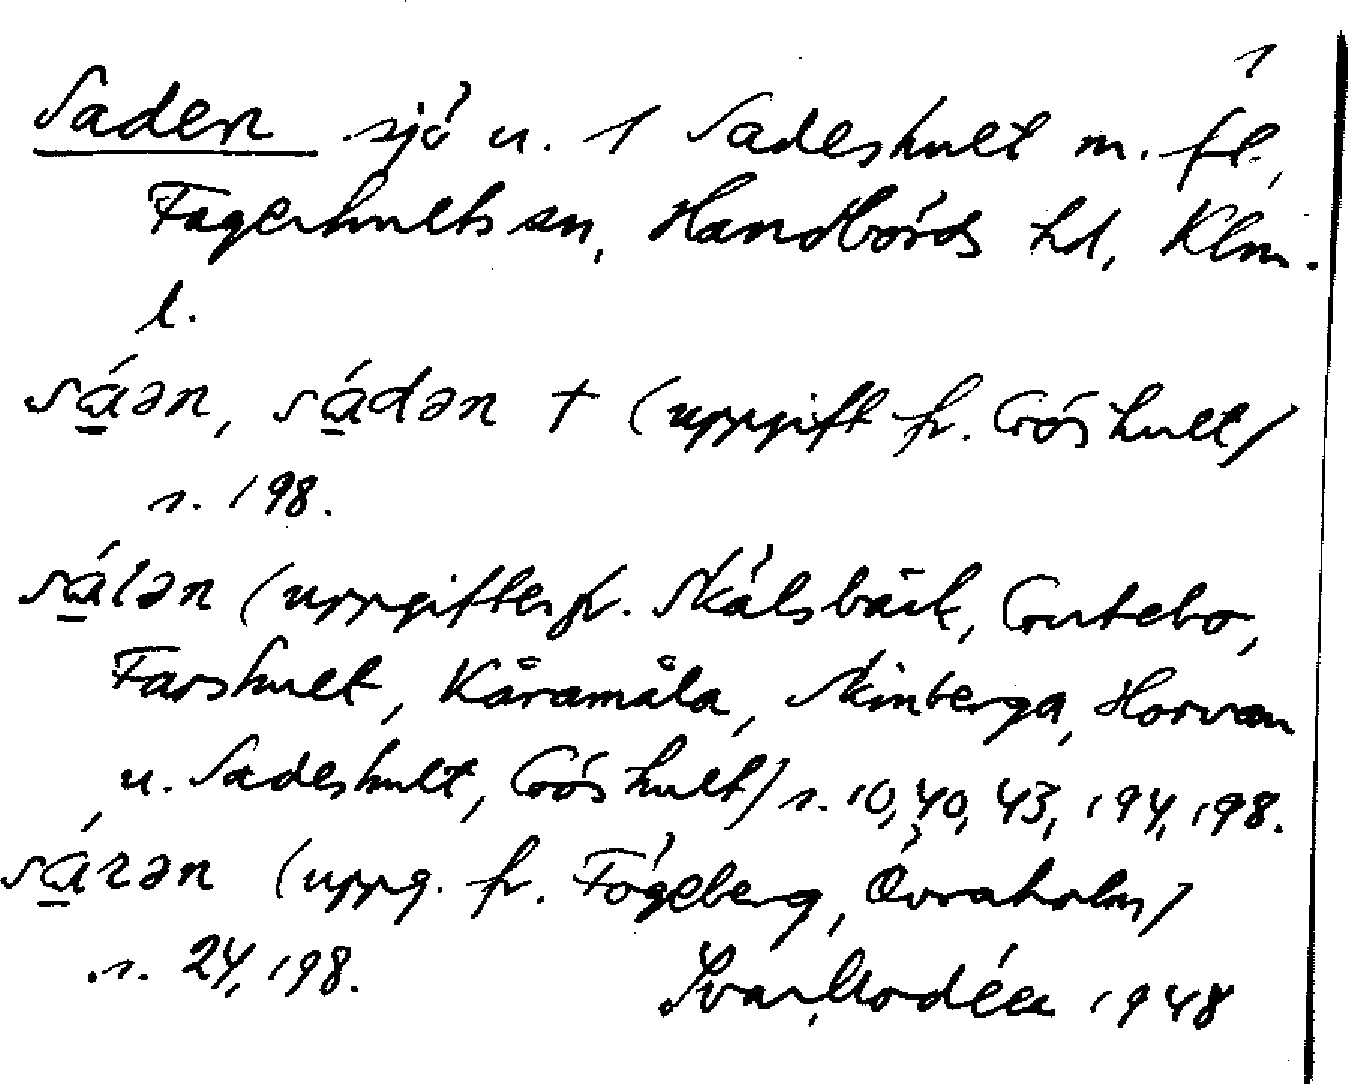 1
Saden sjö u. 1 Sadeshult m. fl.,
Fagerhults sn, Handbörds hd, Klm.
l.
sá̱ən, sá̱dən † (uppgift fr. Göshult)
s. 198.
sá̱lən (uppgifter fr. Skälsbäck, Gutebo,
Farshult, Kåramåla, Skinberga, Horvan
u. Sadeshult, Göshult) s. 10, 40, 43, 194, 198.
sá̱rən (uppg. fr. Fögeberg, Övraholm)
s. 24, 198.
Ivar Modéer 1948